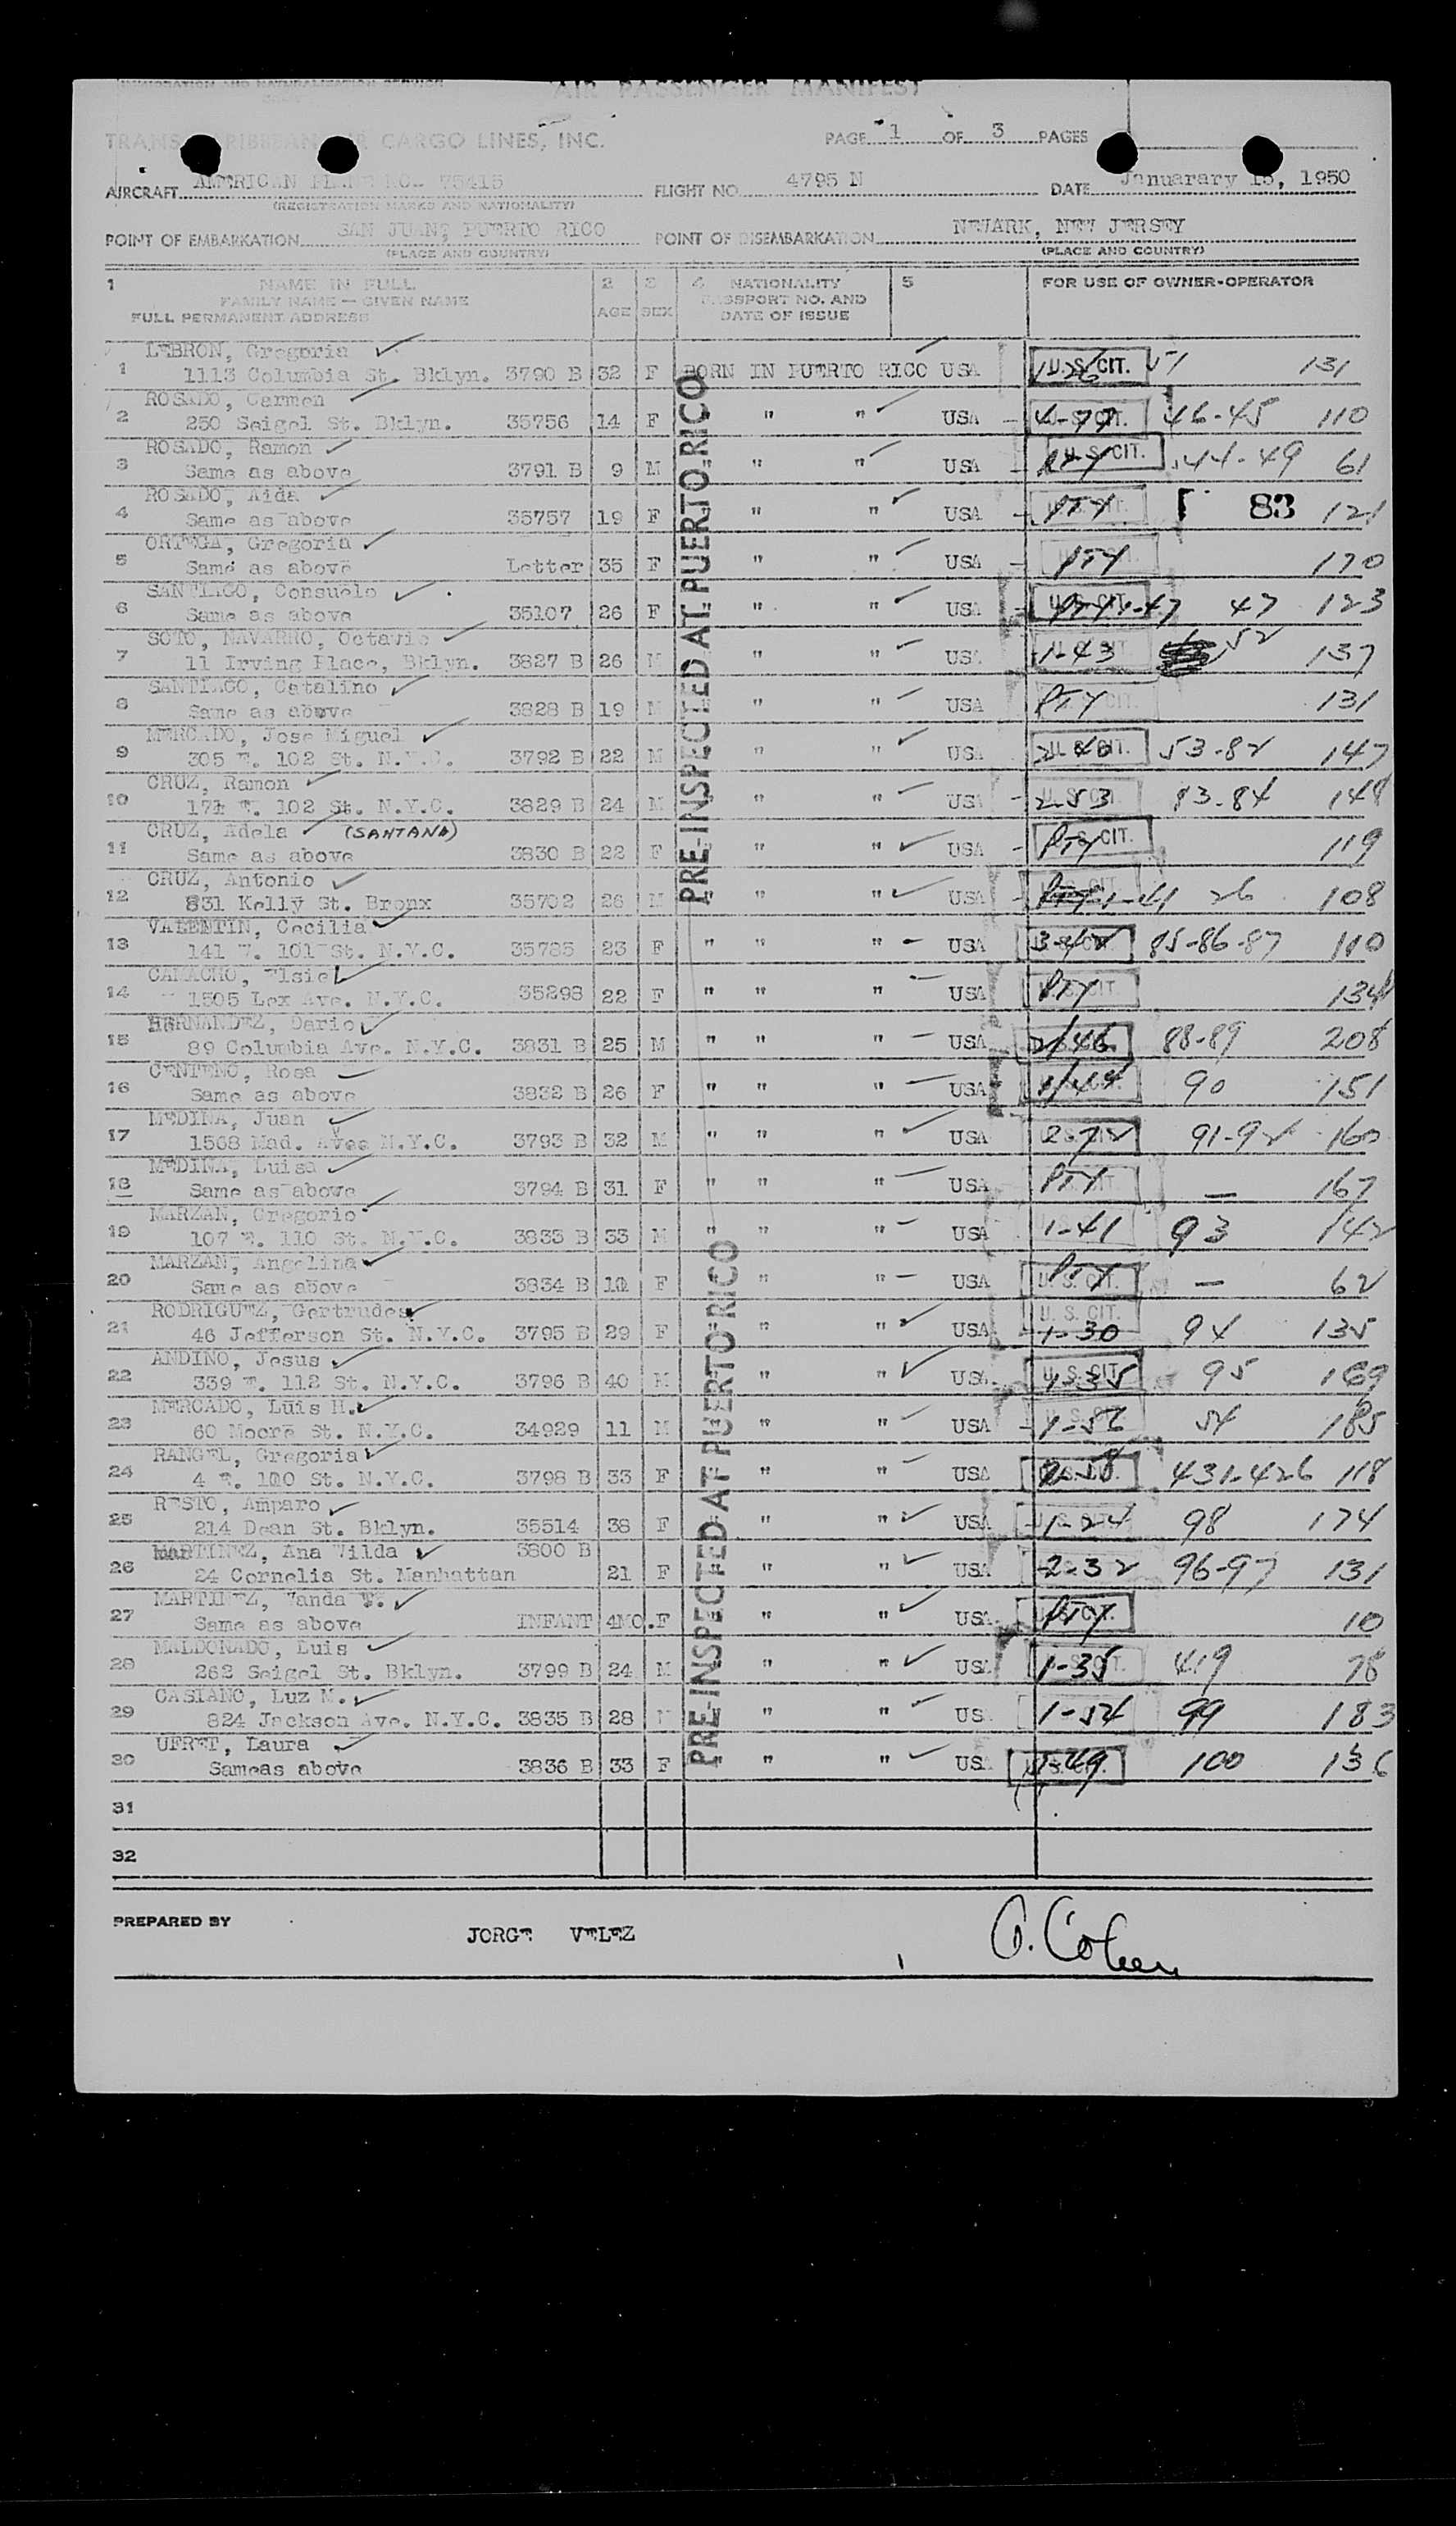 IMMIGRATION AND NATURALIZATION SERVICE
AIR PASSENGER MANIFEST
TRANS CARIBBEAN AIR CARGO LINES, INC. PAGE 1 OF 3 PAGES
AIRCRAFT AMERICAN PLANE NO. 75415 FLIGHT NO. 4795 N DATE Januarary 15, 1950
(REGISTRATION MARKS AND NATIONALITY)
POINT OF EMBARKATION SAN JUAN, PUERTO RICO POINT OF DISEMBARKATION NEWARK, NEW JERSEY
(PLACE AND COUNTRY) (PLACE AND COUNTRY)
1 NAME IN FULL 2 3 4 NATIONALITY 5 FOR USE OF OWNER-OPERATOR
FAMILY NAME — GIVEN NAME PASSPORT NO. AND
FULL PERMANENT ADDRESS AGE SEX DATE OF ISSUE
PRE-INSPECTED AT PUERTO RICO
LEBRON, Gregoria
1 1113 Columbia St. Bklyn. 3790 B 32 F BORN IN PUERTO RICO USA U.S. CIT. 131
ROSADO, Carmen
2 250 Seigel St. Bklyn. 35756 14 F " " USA 46-45 110
ROSADO, Ramon
3 Same as above 3791 B 9 M " " USA U.S. CIT. 44-49 61
ROSADO, Aida
4 Same as above 35757 19 F " " USA PTY 83 121
ORTEGA, Gregoria
5 Same as above Letter 35 F " " USA PTY 170
SANTIAGO, Consuelo
6 Same as above 35107 26 F " " USA U.S. CIT. 47 123
SOTO, NAVARRO, Octavio
7 11 Irving Place, Bklyn. 3827 B 26 M " " USA 1-43 52 137
SANTIAGO, Catalino
8 Same as above 3828 B 19 M " " USA PTY 131
MERCADO, Jose Miguel
9 305 E. 102 St. N.Y.C. 3792 B 22 M " " USA 53-82 147
CRUZ, Ramon
10 174 E. 102 St. N.Y.C. 3829 B 24 M " " USA 2-53 83-84 148
CRUZ, Adela (SANTANA)
11 Same as above 3830 B 22 F " " USA PTY 119
CRUZ, Antonio
12 831 Kelly St. Bronx 35702 26 M " " USA 26 108
VALENTIN, Cecilia
13 141 W. 101 St. N.Y.C. 35785 23 F " " " USA 85-86-87 110
CAMACHO, Elsie
14 1505 Lex Ave. N.Y.C. 35298 22 F " " " USA PTY 134
HERNANDEZ, Dario
15 89 Columbia Ave. N.Y.C. 3831 B 25 M " " " USA 88-89 208
CENTENO, Rosa
16 Same as above 3832 B 26 F " " " USA 90 151
MEDINA, Juan
17 1568 Mad. Ave. N.Y.C. 3793 B 32 M " " " USA 91-92 160
MEDINA, Luisa
18 Same as above 3794 B 31 F " " " USA PTY — 167
MARZAN, Gregorio
19 107 E. 110 St. N.Y.C. 3833 B 33 M " " " USA 1-41 93 142
MARZAN, Angelina
20 Same as above 3834 B F " " USA PTY — 62
RODRIGUEZ, Gertrudes
21 46 Jefferson St. N.Y.C. 3795 B 29 F " " USA U. S. CIT. 1-30 94 135
ANDINO, Jesus
22 339 E. 112 St. N.Y.C. 3796 B 40 M " " USA U. S. CIT. 95 169
MERCADO, Luis H.
23 60 Moore St. N.Y.C. 34929 11 M " " USA 54 185
RANGEL, Gregoria
24 4 E. 110 St. N.Y.C. 3798 B 33 F " " USA 431-426 118
RESTO, Amparo
25 214 Dean St. Bklyn. 35514 38 F " " USA 1-24 98 174
MARTINEZ, Ana Wilda 3800 B
26 24 Cornelia St. Manhattan 21 F " " USA 2-32 96-97 131
MARTINEZ, Wanda E.
27 Same as above INFANT 4MO. F " " USA PTY 10
MALDONADO, Luis
28 262 Seigel St. Bklyn. 3799 B 24 M " " USA 1-35 419 78
CASIANO, Luz M.
29 824 Jackson Ave. N.Y.C. 3835 B 28 " " US 1-54 99 183
UFRET, Laura
30 Sameas above 3836 B 33 F " " US 1-49 100 136
PRE-INSPECTED AT PUERTO RICO
31
32
PREPARED BY JORGE VELEZ O. Cohen